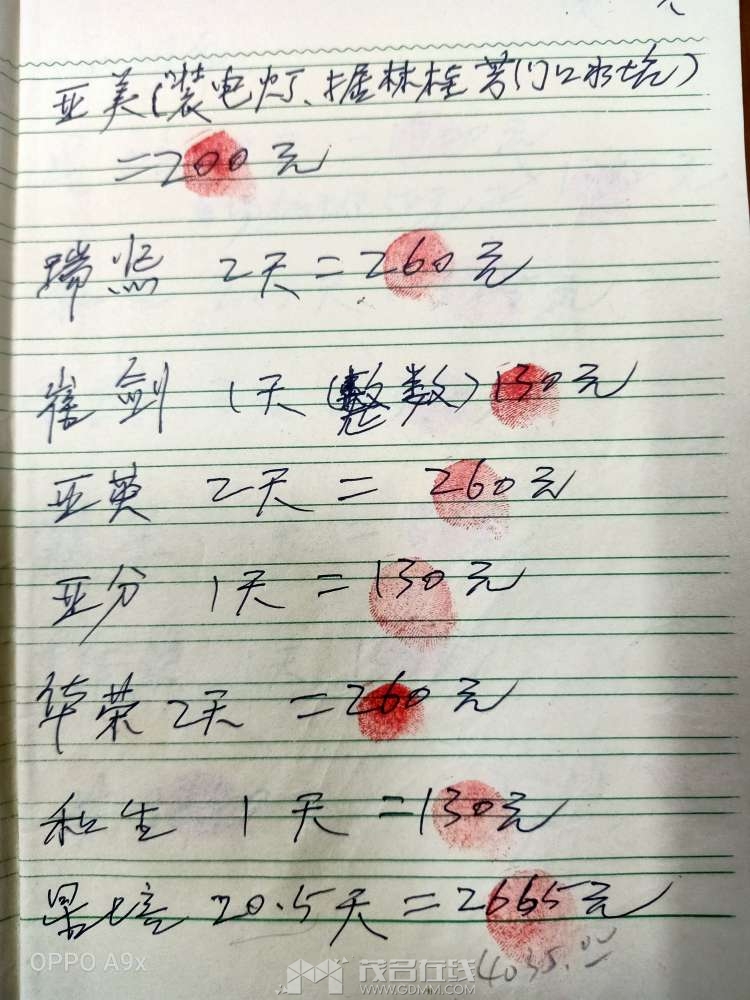 亚美(装电灯、掘林桂芳门口水坑)
=200元
瑞照 2天=260元
崔剑 1天(整数)130元
亚英 2天= 260元
亚分 1天=130元
华荣 2天 =260元
和生 1天=130元
果培 20.5天=2665元
4035.00
OPPO A9x
茂名在线
WWW.GDMM.COM